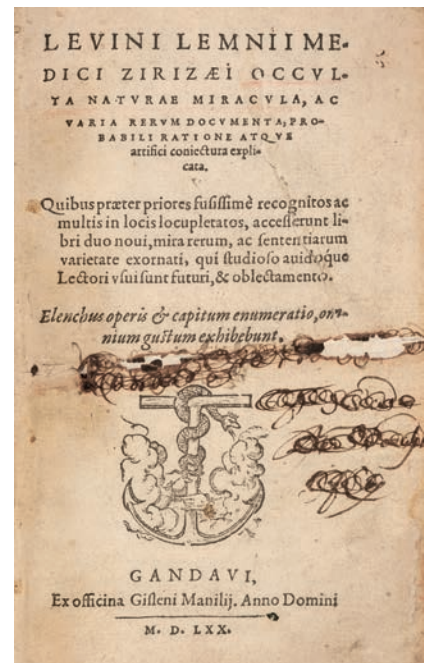 LEVINI LEMNII ME-
DICI ZIRIZÆI OCCVL-
TA NATVRAE MIRACVLA, AC
VARIA RERVM DOCVMENTA, PRO-
BABILI RATIONE ATQVE
artifici coniectura expli-
cata.
Quibus præter priores fusissimè recognitos ac
multis in locis locupletatos, accesserunt li-
bri duo noui, mira rerum, ac sententiarum
varietate exornati, qui studioso auidoque
Lectori vsui sunt futuri, & oblectamento.
Elenchus operis & capitum enumeratio, om-
nium gustum exhibebunt.
GANDAVI,
Ex officina Gisleni Manilij. Anno Domini
M. D. LXX.